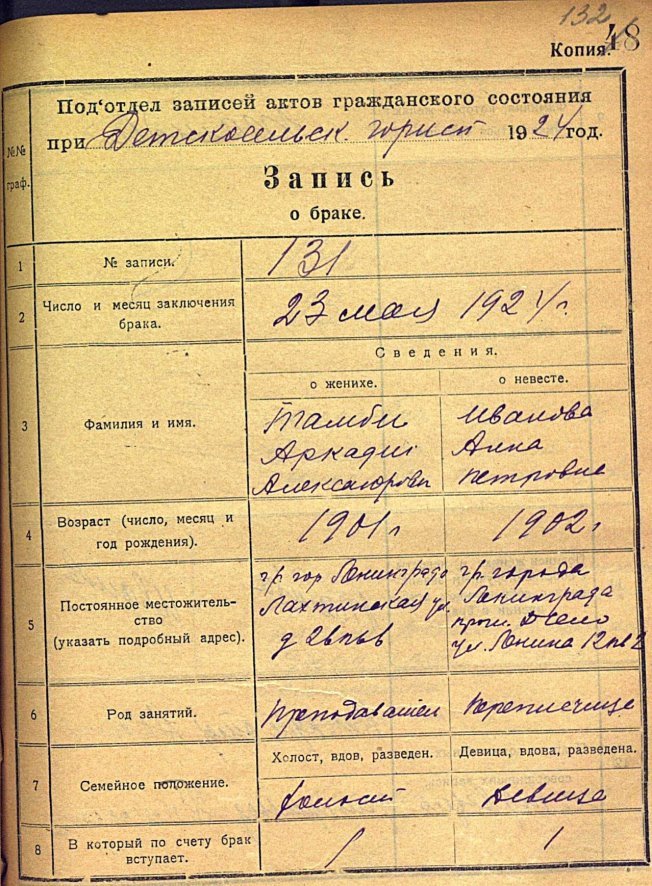 132
Копия. 48
Под'отдел записей актов гражданского состояния
при Детскосельск 1924 год.
№№ граф.
Запись
о браке.
1 № записи. 131
2 Число и месяц заключения брака. 23 мая 1924 г.
Сведения.
о женихе. о невесте.
3 Фамилия и имя.
Тамби Иванова
Аркадий Анна
Александрович Петровна
4 Возраст (число, месяц и год рождения). 1901 г 1902 г
5 Постоянное местожительство (указать подробный адрес).
гр. гор Ленинграда гр. города
Лахтинская ул. Ленинграда
прож. Д Село
ул. Ленина 12 кв 2
6 Род занятий. Преподаватель Переписчица
Холост, вдов, разведен. Девица, вдова, разведена.
7 Семейное положение. холост девица
8 В который по счету брак вступает. 1 1